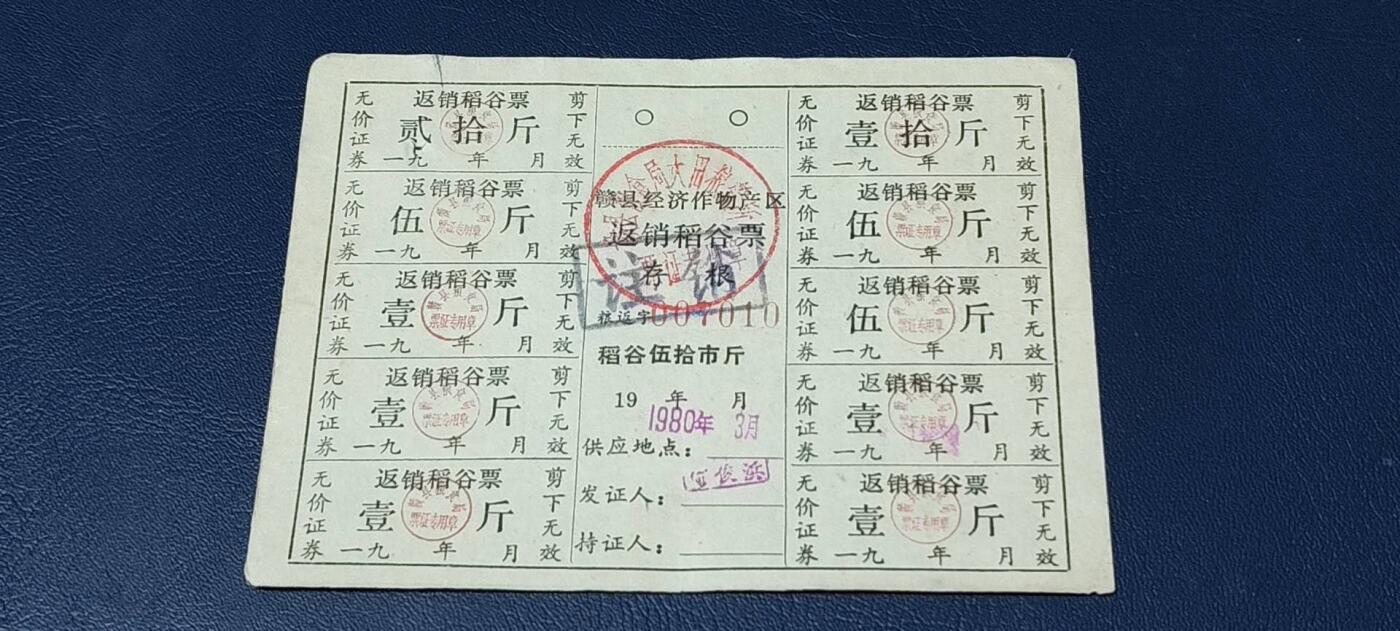 无价证券
返销稻谷票
贰拾斤
一九 年 月
剪下无效
无价证券
返销稻谷票
伍斤
一九 年 月
剪下无效
无价证券
返销稻谷票
壹斤
一九 年 月
剪下无效
无价证券
返销稻谷票
壹斤
一九 年 月
剪下无效
无价证券
返销稻谷票
壹斤
一九 年 月
剪下无效
赣县经济作物产区
返销稻谷票
存根
注销
粮返字007010
稻谷伍拾市斤
19 年 月
1980年 3月
供应地点：
发证人：
持证人：
无价证券
返销稻谷票
壹拾斤
一九 年 月
剪下无效
无价证券
返销稻谷票
伍斤
票证专用章
一九 年 月
剪下无效
无价证券
返销稻谷票
伍斤
票证专用章
一九 年 月
剪下无效
无价证券
返销稻谷票
壹斤
一九 年 月
剪下无效
无价证券
返销稻谷票
壹斤
票证专用章
一九 年 月
剪下无效